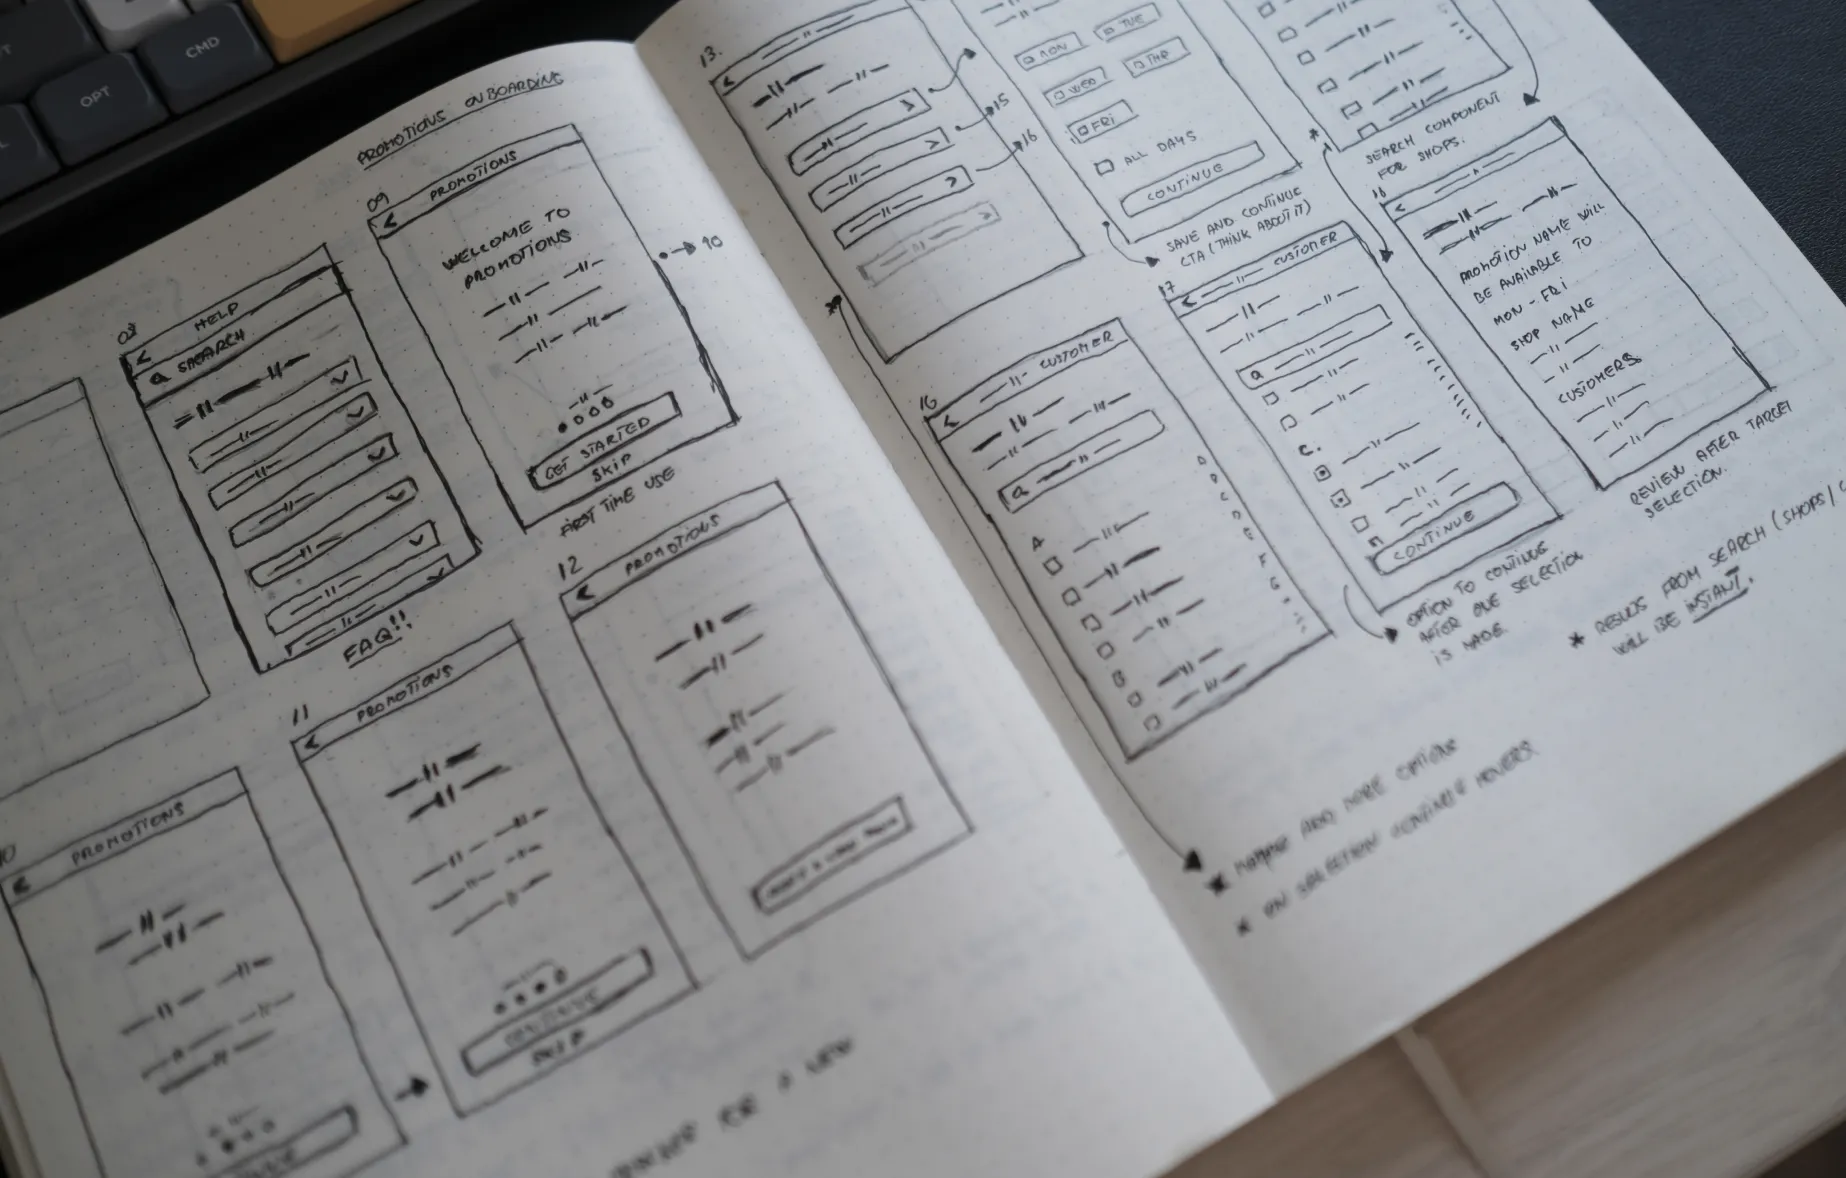 CMD
OPT
PROMOTIONS ONBOARDING
08
HELP
SEARCH
FAQ!!
09
PROMOTIONS
WELCOME TO
PROMOTIONS
GET STARTED
SKIP
FIRST TIME USE
10
10
PROMOTIONS
11
PROMOTIONS
CONTINUE
SKIP
12
PROMOTIONS
FOR A NEW
13.
15
16
MON
TUE
WED
THR
FRI
ALL DAYS
CONTINUE
SAVE AND CONTINUE
CTA (THINK ABOUT IT)
SEARCH COMPONENT
FOR SHOPS.
16
CUSTOMER
A
B
A
B
C
D
E
F
G
17
CUSTOMER
C.
CONTINUE
OPTION TO CONTINUE
AFTER ONE SELECTION
IS MADE.
18
PROMOTION NAME WILL
BE AVAILABLE TO
MON - FRI
SHOP NAME
CUSTOMERS
REVIEW AFTER TARGET
SELECTION.
* RESULTS FROM SEARCH (SHOPS/
WILL BE INSTANT.
* ADD MORE OPTIONS
* ON SELECTION CONTINUE HOVERS.